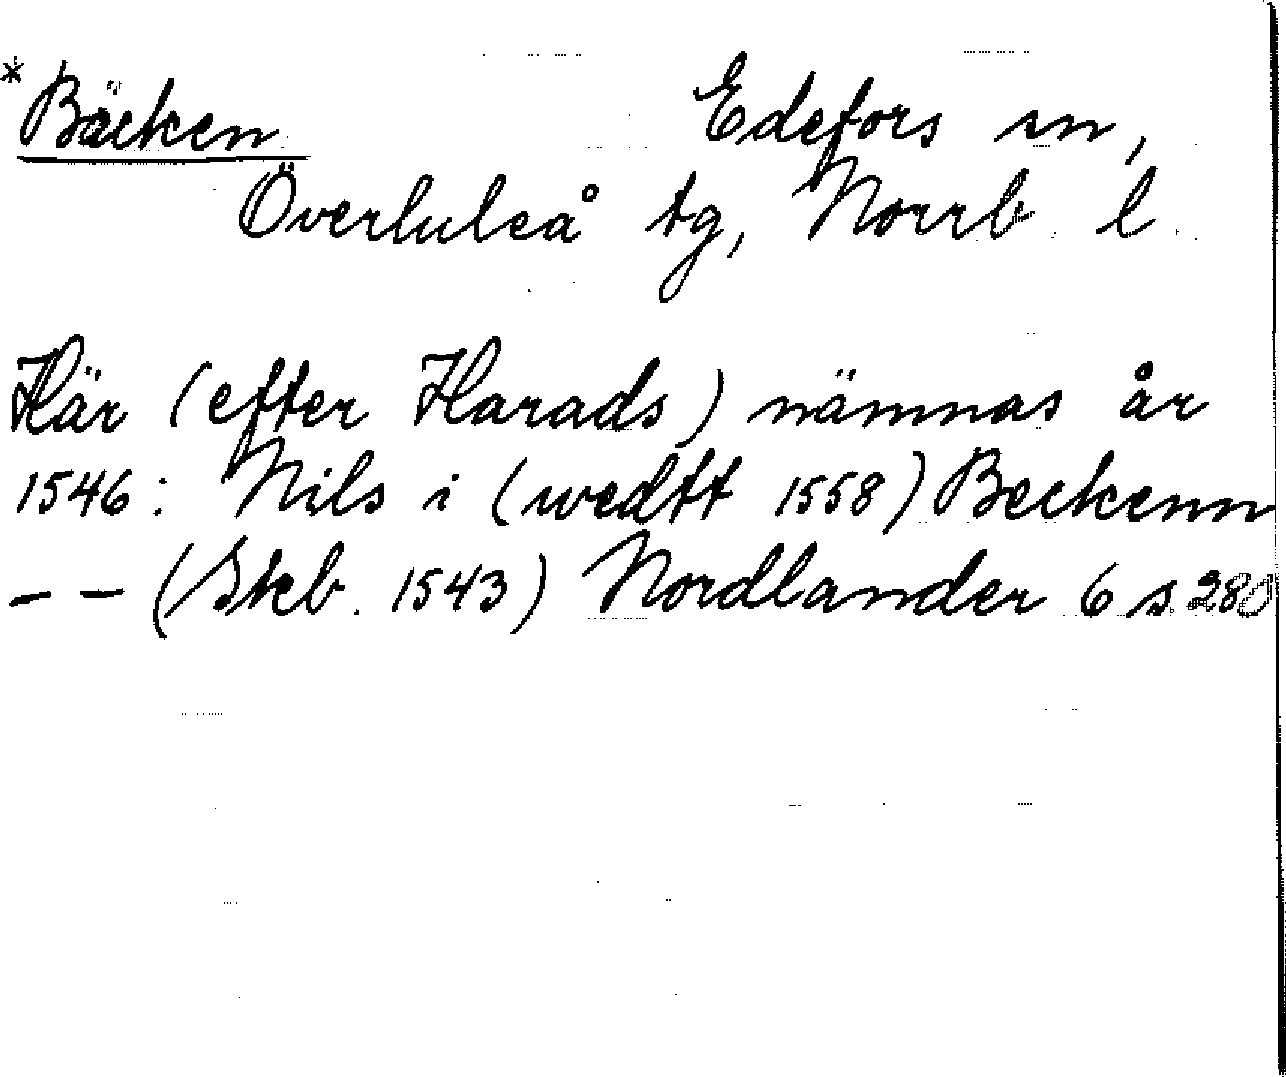 *Bäcken Edefors sn,
Överluleå tg, Norrb. l.
Här (efter Harads) nämnas år
1546: Nils i (wedtt 1558) Beckenn
– – (Skb. 1543) Nordlander 6 s 280